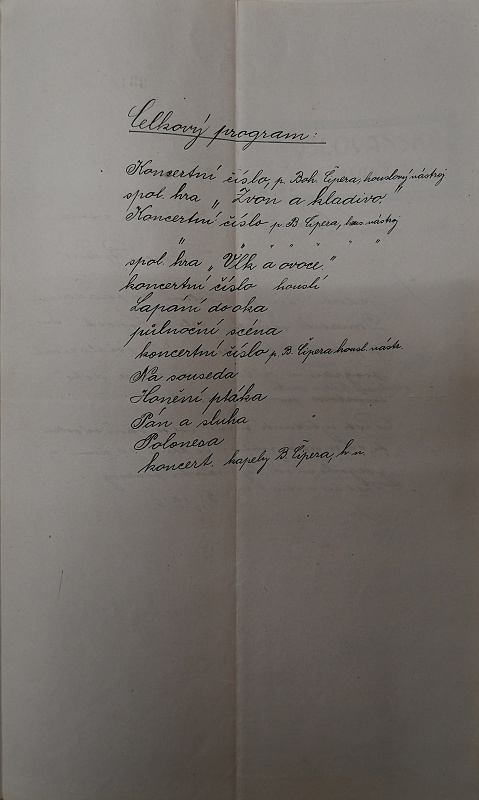 Celkový program:
Koncertní číslo, p. Boh. Čipera, houslový nástroj
spol. hra „Zvon a kladivo."
Koncertní číslo p. B Čipera, hous. nástroj
" " " " " " "
spol. hra „Vlk a ovoce."
koncertní číslo houslí
Lapání do oka
půlnoční scéna
koncertní číslo p. B. Čipera housl. nástr.
Na souseda
Honění ptáka
Pán a sluha
Polonesa
koncert. kapely B. Čipera, h. n.